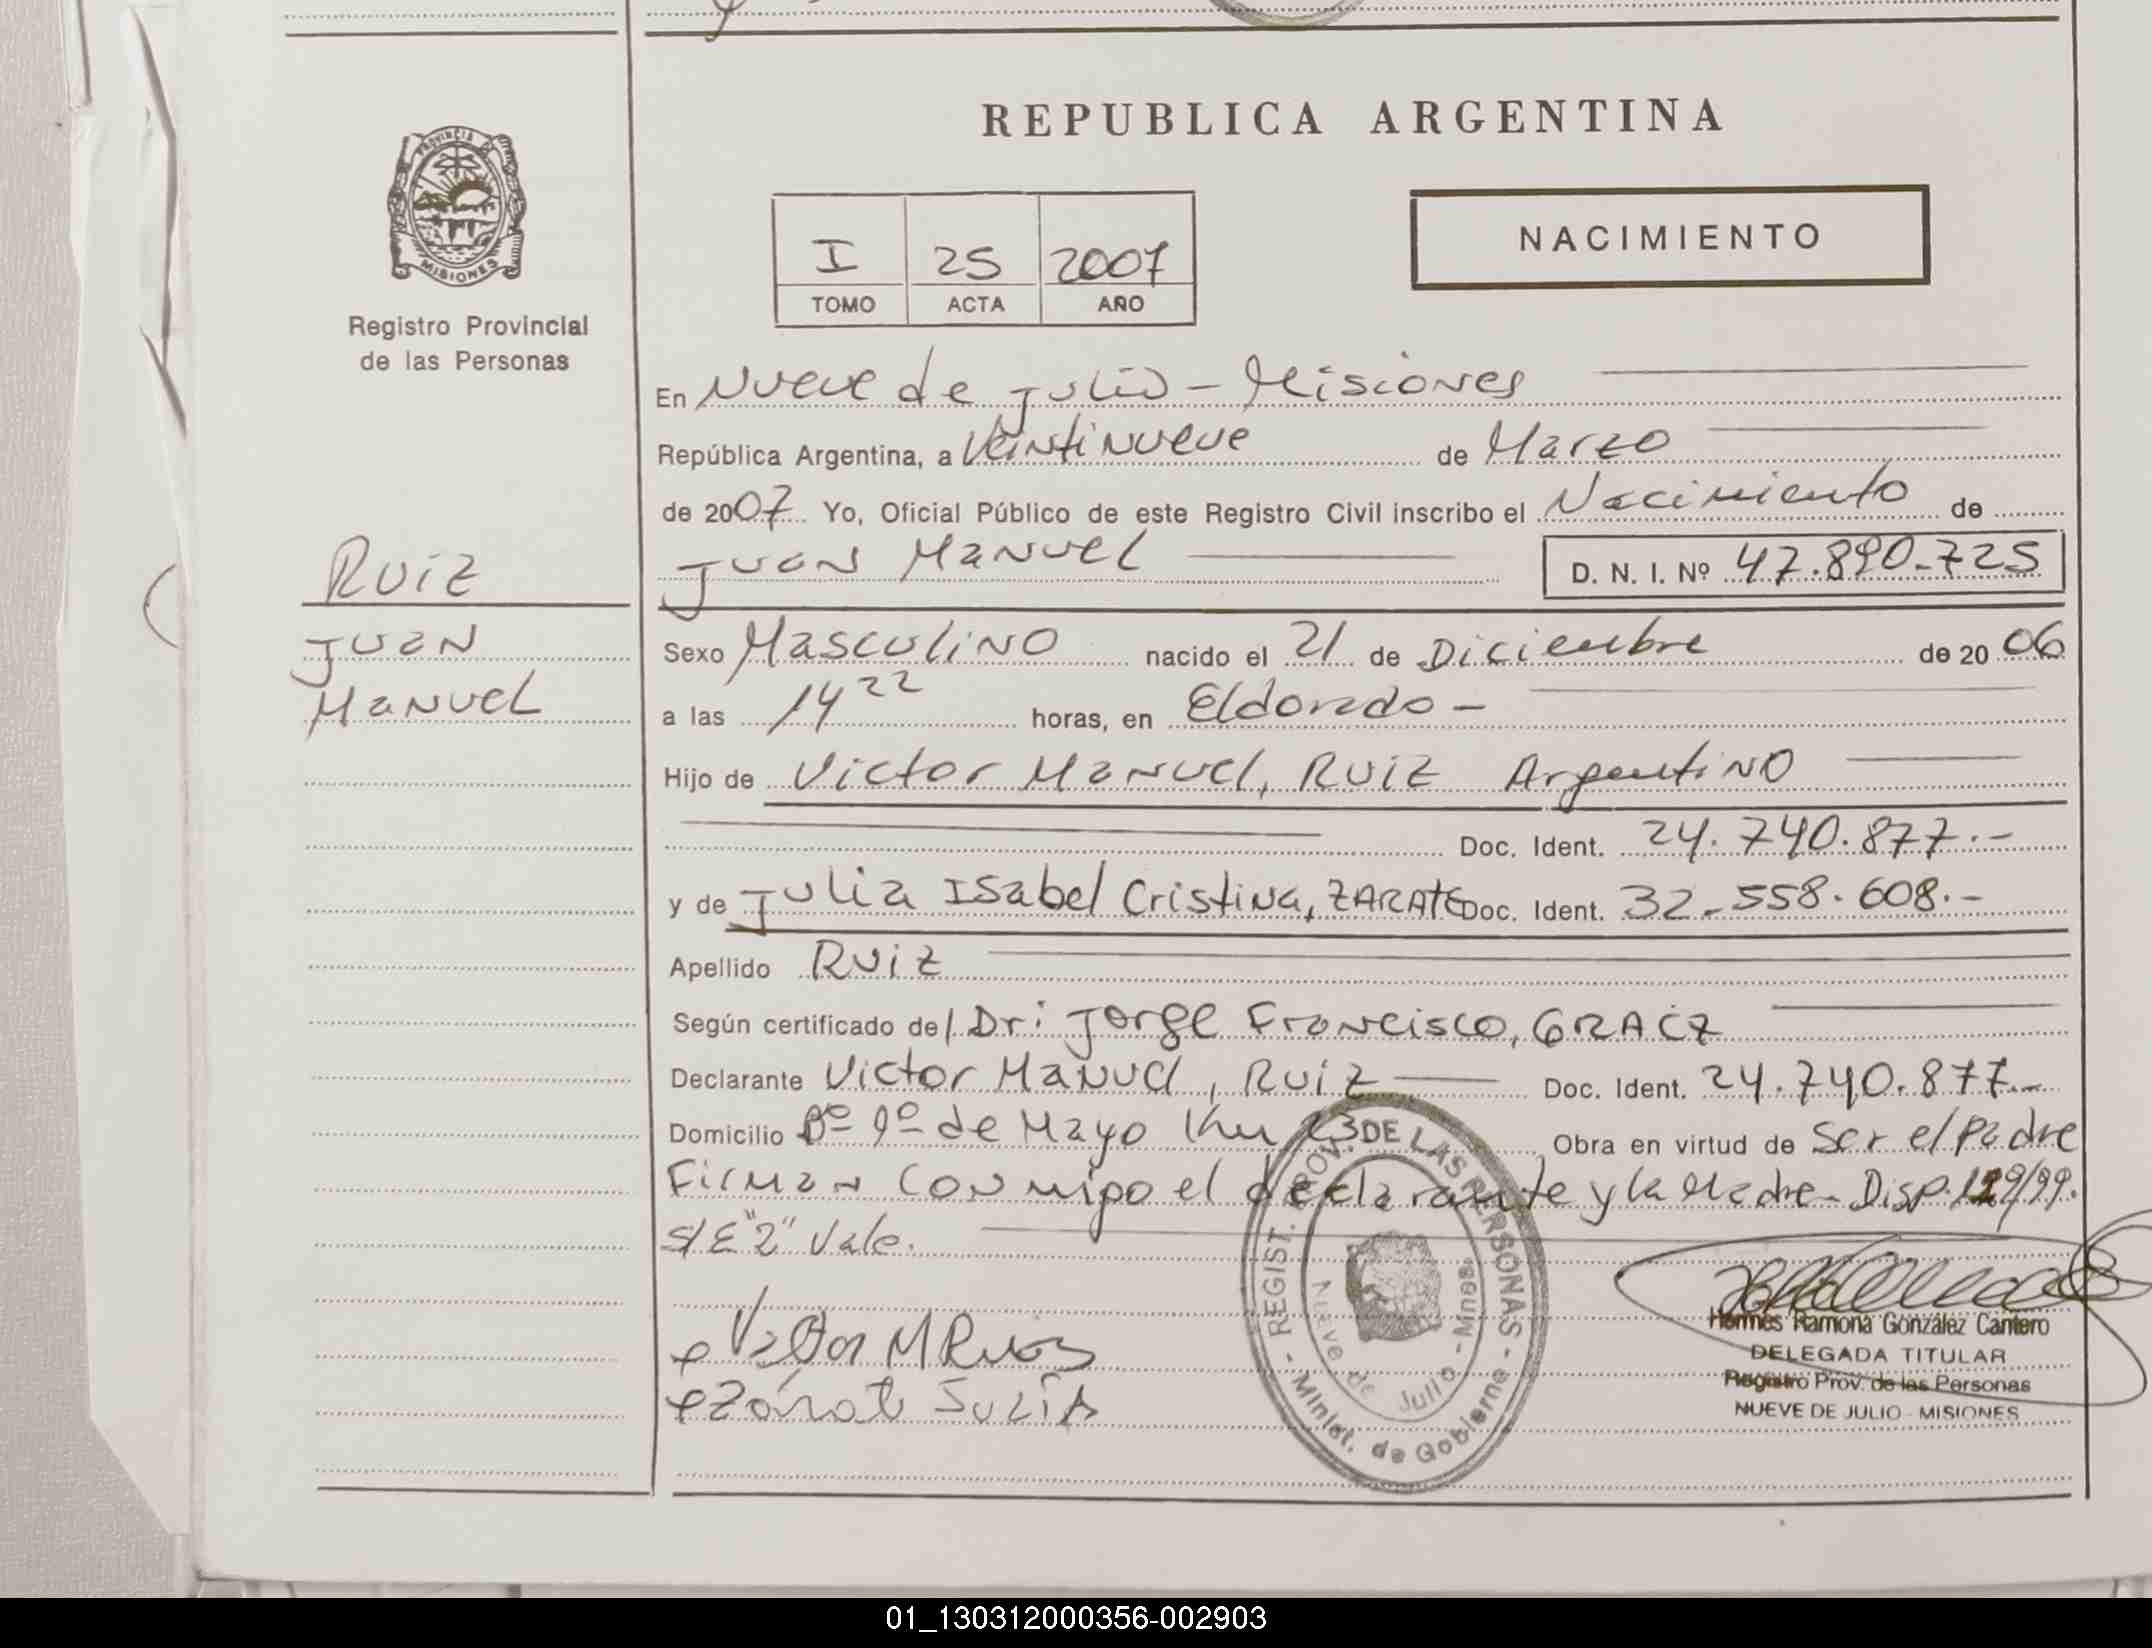 REPUBLICA ARGENTINA
PROVINCIA DE
MISIONES
Registro Provincial
de las Personas
I 25 2007
TOMO ACTA AÑO
NACIMIENTO
En Nueve de Julio - Misiones
República Argentina, a Veintinueve de Marzo
de 2007 Yo, Oficial Público de este Registro Civil inscribo el Nacimiento de
Juan Manuel D. N. I. Nº 47.890.725
Ruiz
Juan
Manuel
Sexo Masculino nacido el 21 de Diciembre de 2006
a las 14 22 horas, en Eldorado -
Hijo de Victor Manuel, Ruiz Argentino
Doc. Ident. 24.740.877.-
y de Julia Isabel Cristina, ZARATE Doc. Ident. 32.558.608.-
Apellido Ruiz
Según certificado del Dr: Jorge Francisco, GRACZ
Declarante Victor Manuel, Ruiz Doc. Ident. 24.740.877.-
Domicilio Bº 1º de Mayo Km 23 Obra en virtud de Ser el Padre
Firman conmigo el declarante y la Madre - Disp. 129/99.
S/E "2" Vale.
Victor M Ruiz
Zárate Julia
REGIST. PROV. DE LAS PERSONAS
- Minist. de Gobierno -
Nueve de Julio - Mnes.
Hermes Ramona González Cantero
DELEGADA TITULAR
Registro Prov. de las Personas
NUEVE DE JULIO - MISIONES
01_130312000356-002903